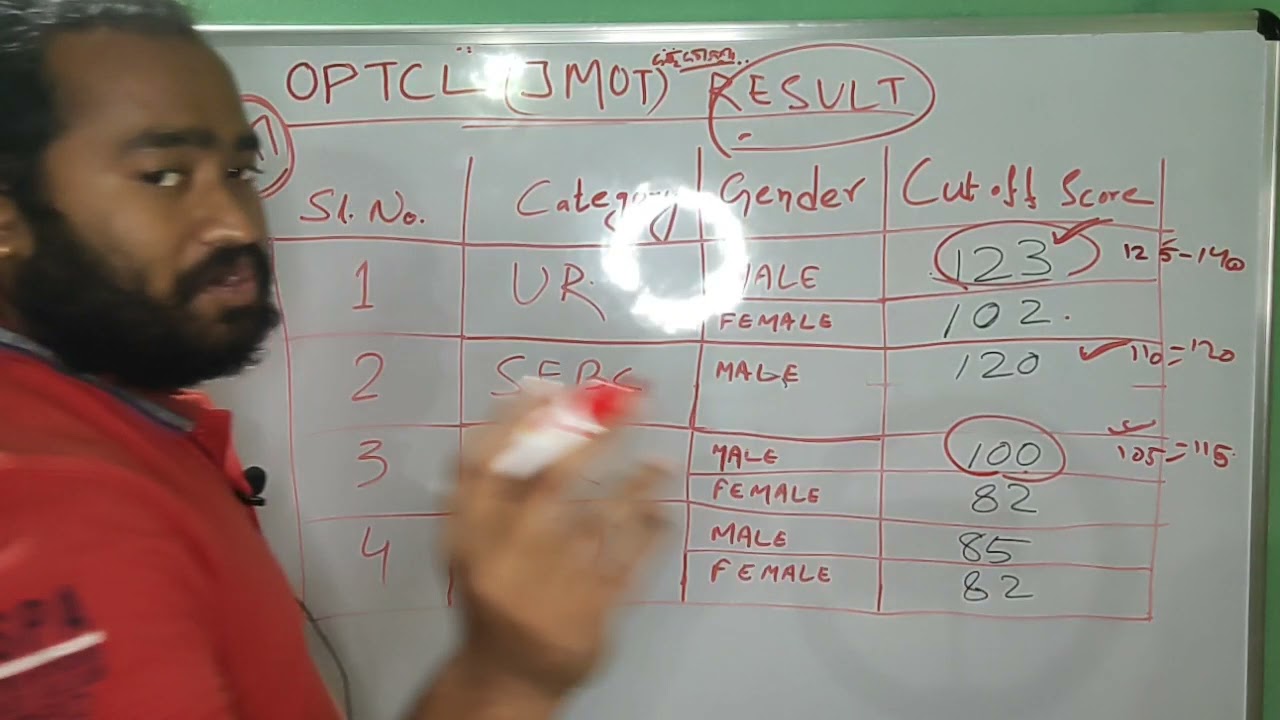 OPTCL (JMOT) RESULT
Sl. No. Category Gender Cut off Score
1 UR MALE 123 125-140
FEMALE 102.
2 SEBC MALE 120 110=120
3 MALE 100 105=115
FEMALE 82
4 MALE 85
FEMALE 82